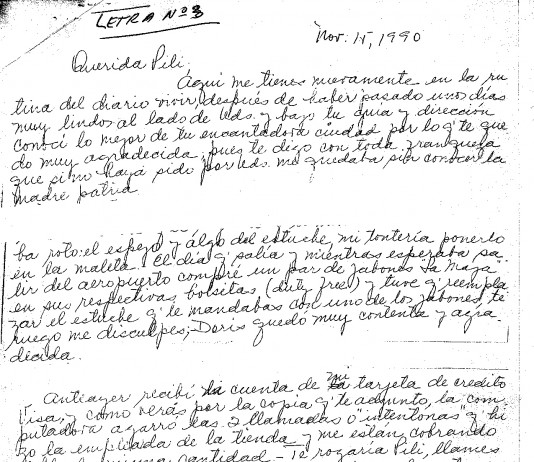 LETRA Nº 3
Nov. 15, 1990
Querida Pili,
Aquí me tienes nuevamente en la ru
tina del diario vivir, después de haber pasado unos días
muy lindos al lado de Uds. y bajo tu guía y dirección
conocí lo mejor de tu encantadora ciudad por lo q' te que
do muy agradecida, pues te digo con toda franqueza
que si no haya sido por uds. me quedaba sin conocer la
madre patria
ba roto: el espejo y álgo del estuche, mi tontería ponerlo
en la maleta. El día q' salía y mientras esperaba sa
lir del aeropuerto compré un par de jabones La Maja
en sus respectivas bolsitas (duty free) y tuve q' reempla
zar el estuche q' te mandabas con uno de los jabones, te
ruego me disculpes; Doris quedó muy contenta y agra
decida.
Anteayer recibí la cuenta de mi tarjeta de credito
Visa, y como verás por la copia q' te adjunto, la com
putadora agarró las 2 llamadas o "intentonas" q' hi
zo la empleada de la tienda y me están cobrando
cantidad - Te rogaría Pili, llames